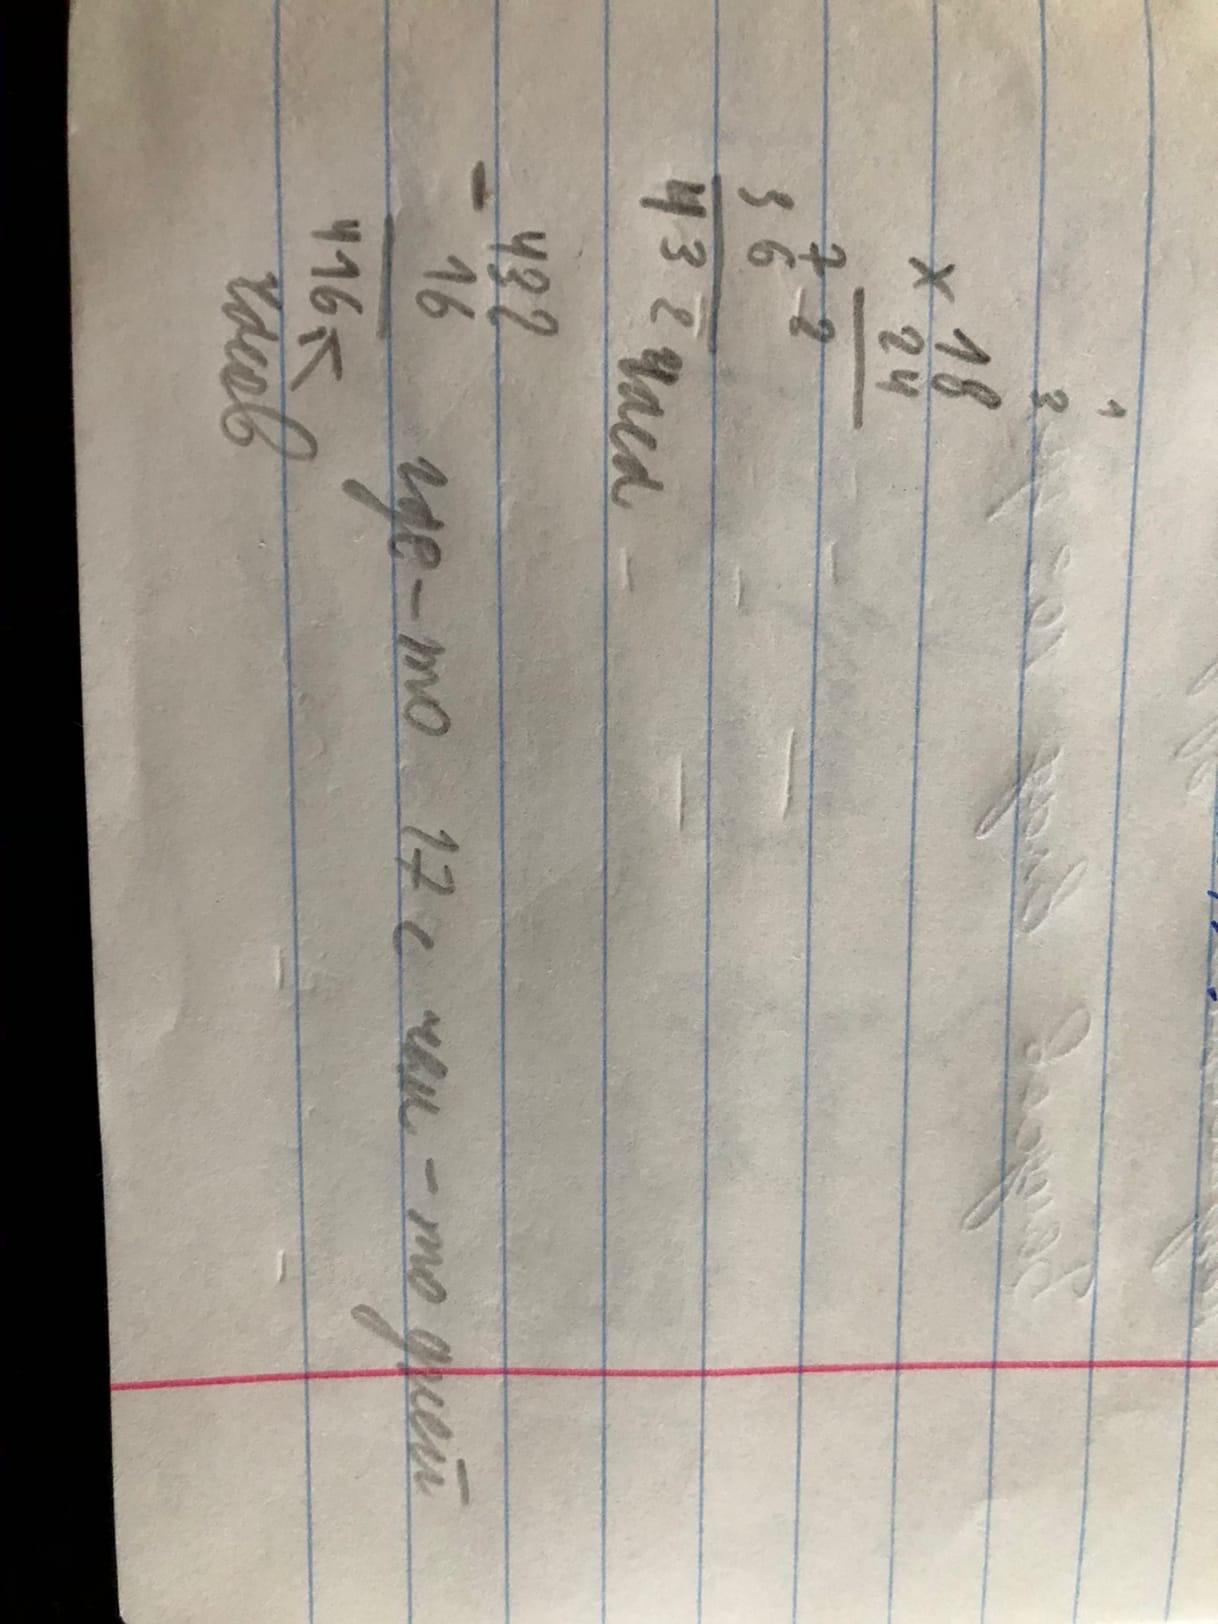 1
3
× 18
24
72
36
432 часа
- 432
16
416
часов
где-то 17 с чем-то дней